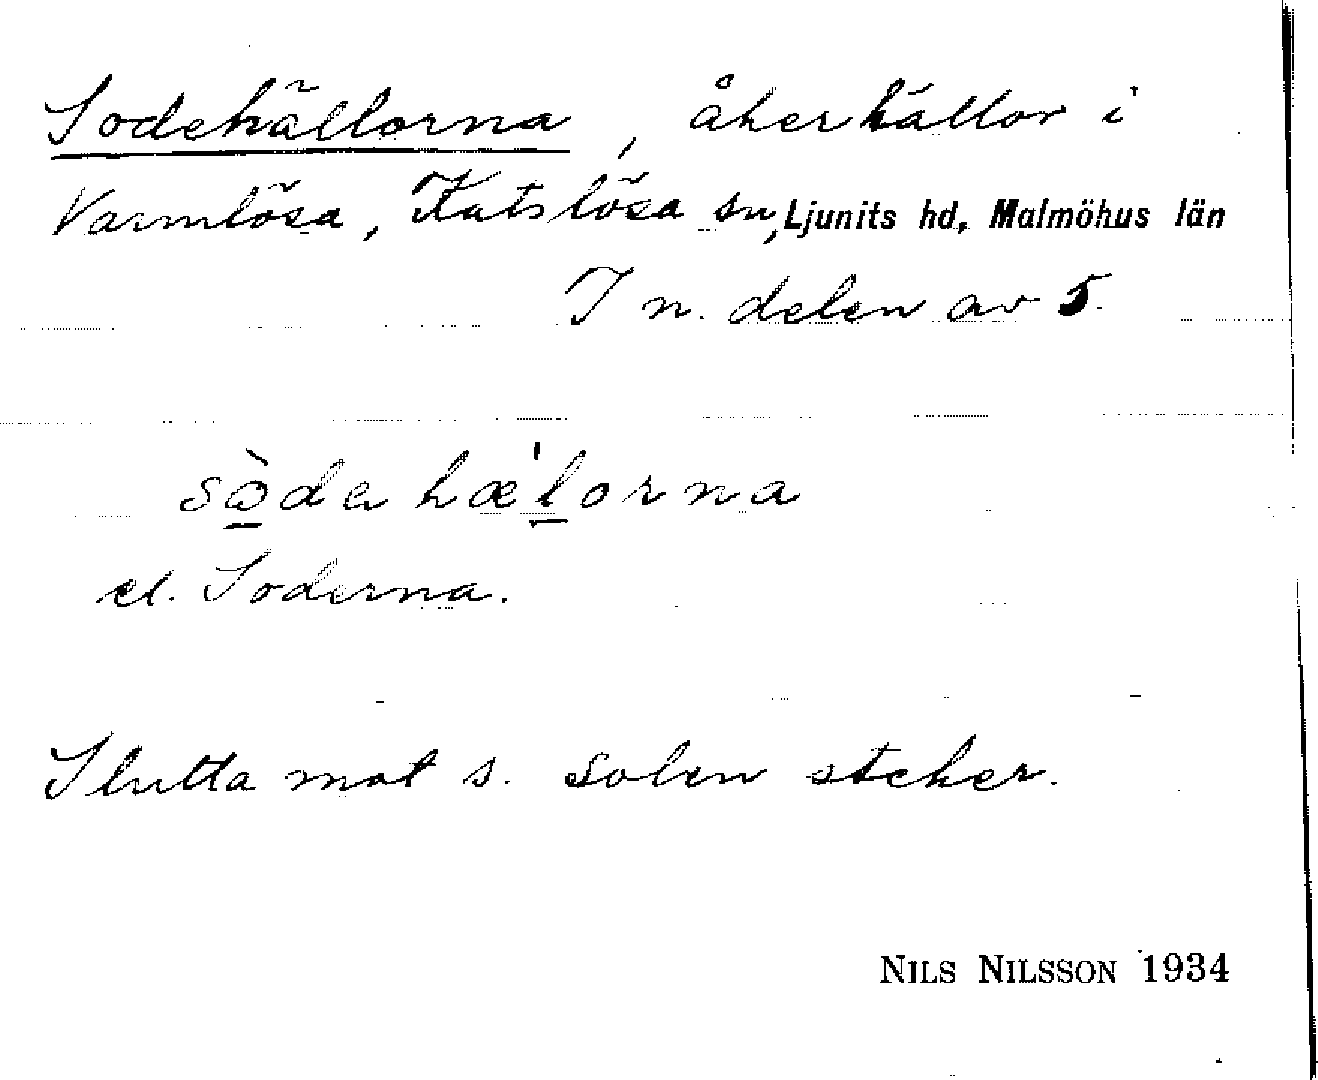 Sodehällorna, åkerhällor i
Varmlösa, Katslösa sn, Ljunits hd, Malmöhus län
I n. delen av 5.
södahæ'lorna
el. Soderna.
Slutta mot s. Solen steker.
NILS NILSSON 1934